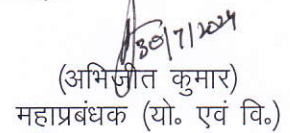 30/7/2024
(अभिजीत कुमार)
महाप्रबंधक (यो० एवं वि०)